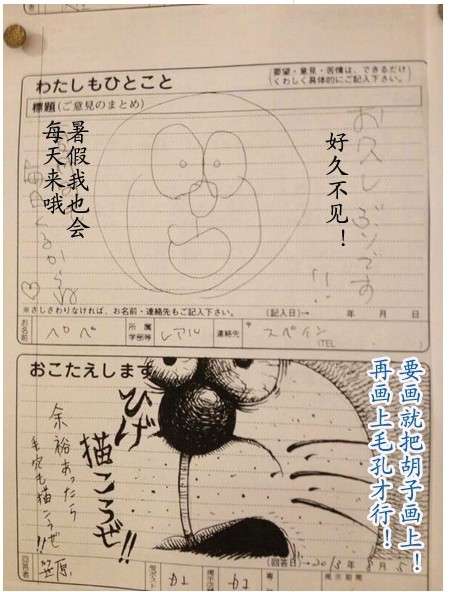 わたしもひとこと
要望・意見・苦情は、できるだけ
くわしく具体的にご記入下さい。
標題(ご意見のまとめ)
お久しぶりです
!!
好久不见！
暑假我也会
每天来哦
※さしさわりなければ、お名前・連絡先もご記入下さい。
(記入日)→ 年 月 日
お名前 ペペ 所属学部等 レアル 連絡先 スペイン
(TEL
おこたえします
ひげ
描こうぜ!!
余裕あったら
毛穴も描こうぜ!!
要画就把胡子画上！
再画上毛孔才行！
回答者 笠原
(回答日)→2013年8月5日